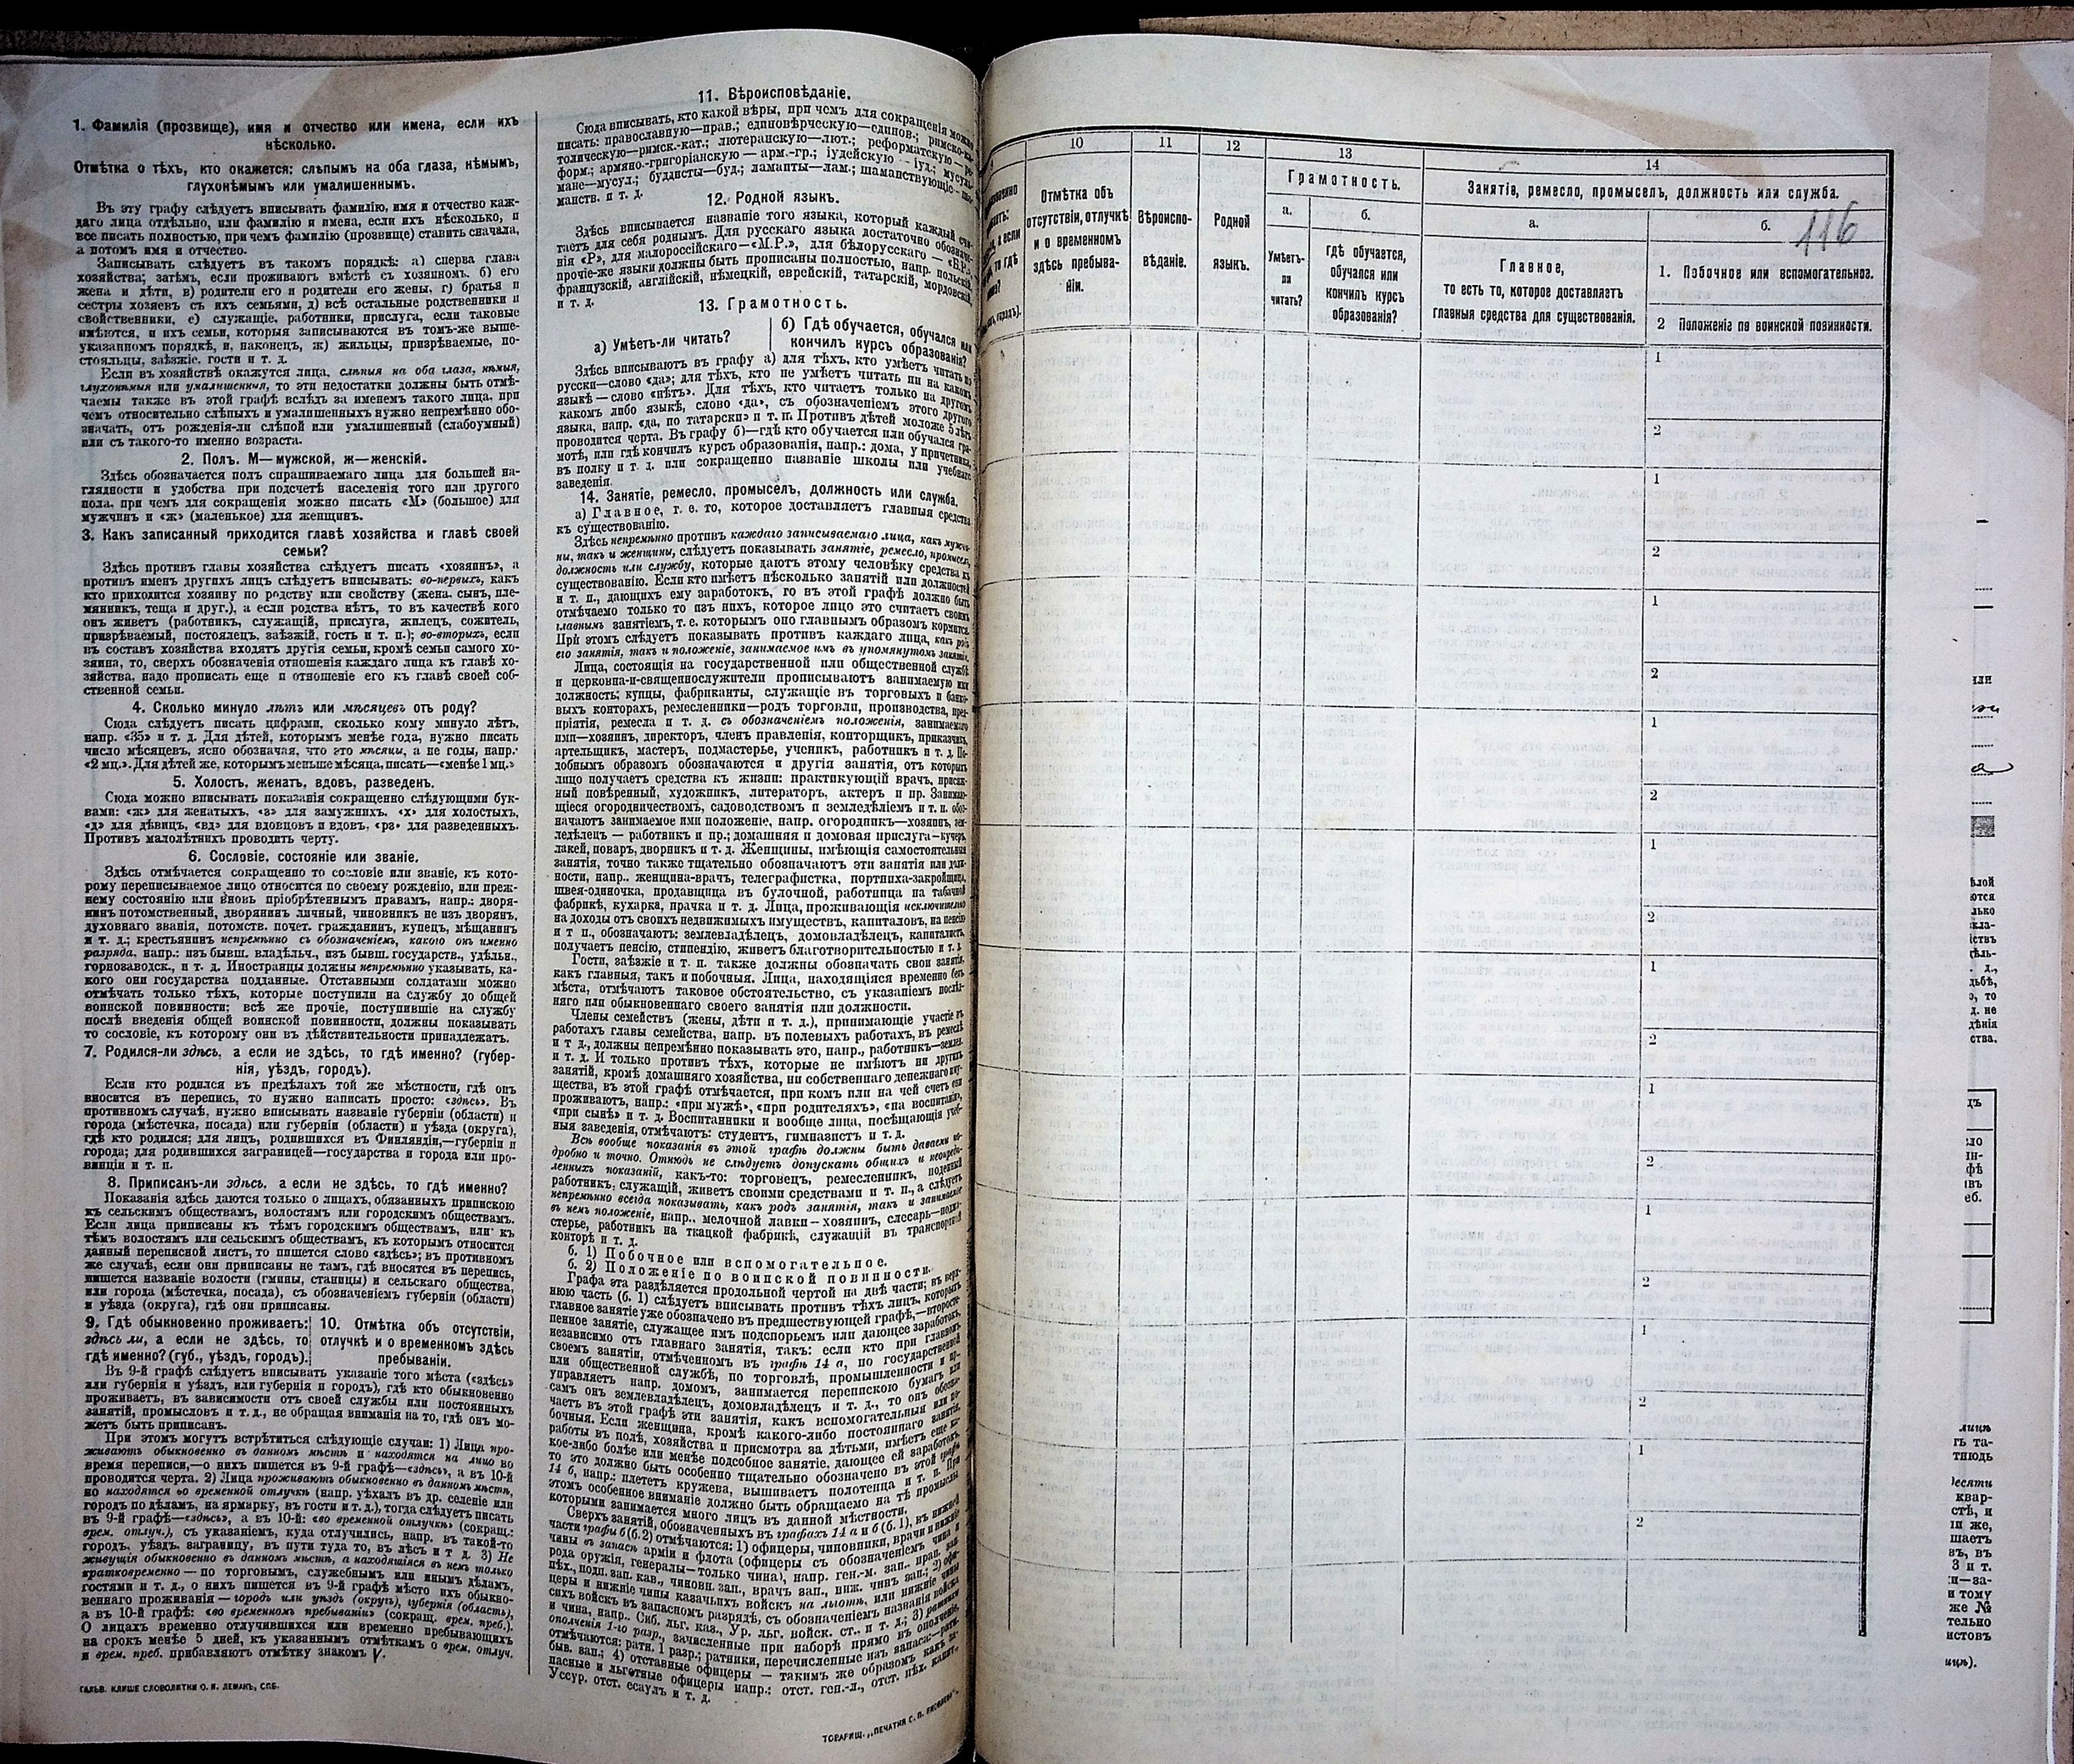 1. Фамилія (прозвище), имя и отчество или имена, если ихъ
нѣсколько.
Отмѣтка о тѣхъ, кто окажется: слѣпымъ на оба глаза, нѣмымъ,
глухонѣмымъ или умалишеннымъ.
Въ эту графу слѣдуетъ вписывать фамилію, имя и отчество каж-
даго лица отдѣльно, или фамилію и имена, если ихъ нѣсколько, и
все писать полностью, при чемъ фамилію (прозвище) ставить сначала,
а потомъ имя и отчество.
Записывать слѣдуетъ въ такомъ порядкѣ: а) сперва глава
хозяйства; затѣмъ, если проживаютъ вмѣстѣ съ хозяиномъ. б) его
жена и дѣти, в) родители его и родители его жены, г) братья и
сестры хозяевъ съ ихъ семьями, д) всѣ остальные родственники и
свойственники, е) служащіе, работники, прислуга, если таковые
имѣются, и ихъ семьи, которыя записываются въ томъ-же выше-
указанномъ порядкѣ, и, наконецъ, ж) жильцы, призрѣваемые, по-
стояльцы, заѣзжіе, гости и т. д.
Если въ хозяйствѣ окажутся лица, слѣпыя на оба глаза, нѣмыя,
глухонѣмыя или умалишенныя, то эти недостатки должны быть отмѣ-
чаемы также въ этой графѣ вслѣдъ за именемъ такого лица, при
чемъ относительно слѣпыхъ и умалишенныхъ нужно непремѣнно обо-
значать, отъ рожденія-ли слѣпой или умалишенный (слабоумный)
или съ такого-то именно возраста.
2. Полъ. М—мужской, ж—женскій.
Здѣсь обозначается полъ спрашиваемаго лица для большей на-
глядности и удобства при подсчетѣ населенія того или другого
пола, при чемъ для сокращенія можно писать «М» (большое) для
мужчинъ и «ж» (маленькое) для женщинъ.
3. Какъ записанный приходится главѣ хозяйства и главѣ своей
семьи?
Здѣсь противъ главы хозяйства слѣдуетъ писать «хозяинъ», а
противъ именъ другихъ лицъ слѣдуетъ вписывать: во-первыхъ, какъ
кто приходится хозяину по родству или свойству (жена, сынъ, пле-
мянникъ, теща и друг.), а если родства нѣтъ, то въ качествѣ кого
онъ живетъ (работникъ, служащій, прислуга, жилецъ, сожитель,
призрѣваемый, постоялецъ, заѣзжій, гость и т. п.); во-вторыхъ, если
въ составъ хозяйства входятъ другія семьи, кромѣ семьи самого хо-
зяина, то, сверхъ обозначенія отношенія каждаго лица къ главѣ хо-
зяйства, надо прописать еще и отношеніе его къ главѣ своей соб-
ственной семьи.
4. Сколько минуло лѣтъ или мѣсяцевъ отъ роду?
Сюда слѣдуетъ писать цифрами, сколько кому минуло лѣтъ,
напр. «35» и т. д. Для дѣтей, которымъ менѣе года, нужно писать
число мѣсяцевъ, ясно обозначая, что это мѣсяцы, а не годы, напр.
«2 мц.». Для дѣтей же, которымъ меньше мѣсяца, писать—«менѣе 1 мц.»
5. Холостъ, женатъ, вдовъ, разведенъ.
Сюда можно вписывать показанія сокращенно слѣдующими бук-
вами: «ж» для женатыхъ, «з» для замужнихъ, «х» для холостыхъ,
«д» для дѣвицъ, «вд» для вдовцовъ и вдовъ, «рз» для разведенныхъ.
Противъ малолѣтнихъ проводить черту.
6. Сословіе, состояніе или званіе.
Здѣсь отмѣчается сокращенно то сословіе или званіе, къ кото-
рому переписываемое лицо относится по своему рожденію, или преж-
нему состоянію или вновь пріобрѣтеннымъ правамъ, напр.: дворя-
нинъ потомственный, дворянинъ личный, чиновникъ не изъ дворянъ,
духовнаго званія, потомств. почет. гражданинъ, купецъ, мѣщанинъ
и т. д.; крестьянинъ непремѣнно съ обозначеніемъ, какого онъ именно
разряда, напр.: изъ бывш. владѣльч., изъ бывш. государств., удѣльн.,
горнозаводск., и т. д. Иностранцы должны непремѣнно указывать, ка-
кого они государства подданные. Отставными солдатами можно
отмѣчать только тѣхъ, которые поступили на службу до общей
воинской повинности; всѣ же прочіе, поступившіе на службу
послѣ введенія общей воинской повинности, должны показывать
то сословіе, къ которому они въ дѣйствительности принадлежатъ.
7. Родился-ли здѣсь, а если не здѣсь, то гдѣ именно? (губер-
нія, уѣздъ, городъ).
Если кто родился въ предѣлахъ той же мѣстности, гдѣ онъ
вносится въ перепись, то нужно написать просто: «здѣсь». Въ
противномъ случаѣ, нужно вписывать названіе губерніи (области) и
города (мѣстечка, посада) или губерніи (области) и уѣзда (округа),
гдѣ кто родился; для лицъ, родившихся въ Финляндіи,—губерніи и
города; для родившихся заграницей—государства и города или про-
винціи и т. п.
8. Приписанъ-ли здѣсь, а если не здѣсь, то гдѣ именно?
Показанія здѣсь даются только о лицахъ, обязанныхъ припискою
къ сельскимъ обществамъ, волостямъ или городскимъ обществамъ.
Если лица приписаны къ тѣмъ городскимъ обществамъ, или къ
тѣмъ волостямъ или сельскимъ обществамъ, къ которымъ относится
данный переписной листъ, то пишется слово «здѣсь»; въ противномъ
же случаѣ, если они приписаны не тамъ, гдѣ вносятся въ перепись,
пишется названіе волости (гмины, станицы) и сельскаго общества,
или города (мѣстечка, посада), съ обозначеніемъ губерніи (области)
и уѣзда (округа), гдѣ они приписаны.
9. Гдѣ обыкновенно проживаетъ:
здѣсь ли, а если не здѣсь, то
гдѣ именно? (губ., уѣздъ, городъ).
10. Отмѣтка объ отсутствіи,
отлучкѣ и о временномъ здѣсь
пребываніи.
Въ 9-й графѣ слѣдуетъ вписывать указаніе того мѣста («здѣсь»
или губернія и уѣздъ, или губернія и городъ), гдѣ кто обыкновенно
проживаетъ, въ зависимости отъ своей службы или постоянныхъ
занятій, промысловъ и т. д., не обращая вниманія на то, гдѣ онъ мо-
жетъ быть приписанъ.
При этомъ могутъ встрѣтиться слѣдующіе случаи: 1) Лица про-
живаютъ обыкновенно въ данномъ мѣстѣ и находятся на лицо во
время переписи,—о нихъ пишется въ 9-й графѣ—«здѣсь», а въ 10-й
проводится черта. 2) Лица проживаютъ обыкновенно въ данномъ мѣстѣ,
но находятся во временной отлучкѣ (напр. уѣхалъ въ др. селеніе или
городъ по дѣламъ, на ярмарку, въ гости и т. д.), тогда слѣдуетъ писать
въ 9-й графѣ—«здѣсь», а въ 10-й: «во временной отлучкѣ» (сокращ.:
врем. отлуч.), съ указаніемъ, куда отлучились, напр. въ такой-то
городъ, уѣздъ, заграницу, въ пути туда то, въ лѣсъ и т д. 3) Не
живущія обыкновенно въ данномъ мѣстѣ, а находящіяся въ немъ только
кратковременно — по торговымъ, служебнымъ или инымъ дѣламъ,
гостями и т. д., о нихъ пишется въ 9-й графѣ мѣсто ихъ обыкно-
веннаго проживанія — городъ или уѣздъ (округъ), губернія (область),
а въ 10-й графѣ: «во временномъ пребываніи» (сокращ. врем. преб.).
О лицахъ временно отлучившихся или временно пребывающихъ
на срокъ менѣе 5 дней, къ указаннымъ отмѣткамъ о врем. отлуч.
и врем. преб. прибавляютъ отмѣтку знакомъ V.
ГАЛЬВ. КЛИШЕ СЛОВОЛИТНИ О. И. ЛЕМАНЪ, СПБ.
11. Вѣроисповѣданіе.
Сюда вписывать, кто какой вѣры, при чемъ для сокращенія можно
писать: православную—прав.; единовѣрческую—единов.; римско-ка-
толическую—римск.-кат.; лютеранскую—лют.; реформатскую—ре-
форм.; армяно-григоріанскую — арм.-гр.; іудейскую — іуд.; мусуль-
мане—мусул.; буддисты—буд.; ламаиты—лам.; шаманствующіе—ша-
манств. и т. д.
12. Родной языкъ.
Здѣсь вписывается названіе того языка, который каждый счи-
таетъ для себя роднымъ. Для русскаго языка достаточно обозначе-
нія «Р», для малороссійскаго—«М.Р.», для бѣлорусскаго — «Б.Р.»,
прочіе-же языки должны быть прописаны полностью, напр. польскій,
французскій, англійскій, нѣмецкій, еврейскій, татарскій, мордовскій,
и т. д.
13. Грамотность.
а) Умѣетъ-ли читать?
б) Гдѣ обучается, обучался или
кончилъ курсъ образованія?
Здѣсь вписываютъ въ графу а) для тѣхъ, кто умѣетъ читать по
русски—слово «да»; для тѣхъ, кто не умѣетъ читать ни на какомъ
языкѣ—слово «нѣтъ». Для тѣхъ, кто читаетъ только на другомъ
какомъ либо языкѣ, слово «да», съ обозначеніемъ этого другого
языка, напр. «да, по татарски» и т. п. Противъ дѣтей моложе 5 лѣтъ
проводится черта. Въ графу б)—гдѣ кто обучается или обучался гра-
мотѣ, или гдѣ кончилъ курсъ образованія, напр.: дома, у причетника,
въ полку и т. д. или сокращенно названіе школы или учебнаго
заведенія.
14. Занятіе, ремесло, промыселъ, должность или служба.
а) Главное, т. е. то, которое доставляетъ главныя средства
къ существованію.
Здѣсь непремѣнно противъ каждаго записываемаго лица, какъ мужчи-
ны, такъ и женщины, слѣдуетъ показывать занятіе, ремесло, промыселъ,
должность или службу, которые даютъ этому человѣку средства къ
существованію. Если кто имѣетъ нѣсколько занятій или должностей
и т. п., дающихъ ему заработокъ, то въ этой графѣ должно быть
отмѣчаемо только то изъ нихъ, которое лицо это считаетъ своимъ
главнымъ занятіемъ, т. е. которымъ оно главнымъ образомъ кормится.
При этомъ слѣдуетъ показывать противъ каждаго лица, какъ родъ
его занятія, такъ и положеніе, занимаемое имъ въ упомянутомъ занятіи.
Лица, состоящія на государственной или общественной службѣ
и церковна-и-священнослужители прописываютъ занимаемую ими
должность; купцы, фабриканты, служащіе въ торговыхъ и банко-
выхъ конторахъ, ремесленники—родъ торговли, производства, пред-
пріятія, ремесла и т. д. съ обозначеніемъ положенія, занимаемаго
ими—хозяинъ, директоръ, членъ правленія, конторщикъ, приказчикъ,
артельщикъ, мастеръ, подмастерье, ученикъ, работникъ и т. д. По-
добнымъ образомъ обозначаются и другія занятія, отъ которыхъ
лицо получаетъ средства къ жизни: практикующій врачъ, присяж-
ный повѣренный, художникъ, литераторъ, актеръ и пр. Занимаю-
щіеся огородничествомъ, садоводствомъ и земледѣліемъ и т. п. обоз-
начаютъ занимаемое ими положеніе, напр. огородникъ—хозяинъ, зем-
ледѣлецъ — работникъ и пр.; домашняя и домовая прислуга—кучеръ,
лакей, поваръ, дворникъ и т. д. Женщины, имѣющія самостоятельныя
занятія, точно также тщательно обозначаютъ эти занятія или долж-
ности, напр., женщина-врачъ, телеграфистка, портниха-закройщица,
швея-одиночка, продавщица въ булочной, работница на табачной
фабрикѣ, кухарка, прачка и т. д. Лица, проживающія исключительно
на доходы отъ своихъ недвижимыхъ имуществъ, капиталовъ, на пенсію
и т п., обозначаютъ: землевладѣлецъ, домовладѣлецъ, капиталистъ,
получаетъ пенсію, стипендію, живетъ благотворительностью и т. д.
Гости, заѣзжіе и т. п. также должны обозначать свои занятія,
какъ главныя, такъ и побочныя. Лица, находящіяся временно безъ
мѣста, отмѣчаютъ таковое обстоятельство, съ указаніемъ послѣд-
няго или обыкновеннаго своего занятія или должности.
Члены семействъ (жены, дѣти и т. д.), принимающіе участіе въ
работахъ главы семейства, напр. въ полевыхъ работахъ, въ ремеслѣ
и т д., должны непремѣнно показывать это, напр., работникъ—землед.
и т. д. И только противъ тѣхъ, которые не имѣютъ ни другихъ
занятій, кромѣ домашняго хозяйства, ни собственнаго денежнаго иму-
щества, въ этой графѣ отмѣчается, при комъ или на чей счетъ они
проживаютъ, напр.: «при мужѣ», «при родителяхъ», «на воспитаніи»,
«при сынѣ» и т. д. Воспитанники и вообще лица, посѣщающія учеб-
ныя заведенія, отмѣчаютъ: студентъ, гимназистъ и т. д.
Всѣ вообще показанія въ этой графѣ должны быть даваемы по-
дробно и точно. Отнюдь не слѣдуетъ допускать общихъ и неопредѣ-
ленныхъ показаній, какъ-то: торговецъ, ремесленникъ, поденный
работникъ, служащій, живетъ своими средствами и т. п., а слѣдуетъ
непремѣнно всегда показывать, какъ родъ занятія, такъ и занимаемое
въ немъ положеніе, напр., мелочной лавки—хозяинъ, слесарь—подма-
стерье, работникъ на ткацкой фабрикѣ, служащій въ транспортной
конторѣ и т. д.
б. 1) Побочное или вспомогательное.
б. 2) Положеніе по воинской повинности.
Графа эта раздѣляется продольной чертой на двѣ части; въ верх-
нюю часть (б. 1) слѣдуетъ вписывать противъ тѣхъ лицъ, которыхъ
главное занятіе уже обозначено въ предшествующей графѣ,—второсте-
пенное занятіе, служащее имъ подспорьемъ или дающее заработокъ,
независимо отъ главнаго занятія, такъ: если кто при главномъ
своемъ занятіи, отмѣченномъ въ графѣ 14 а, по государственной
или общественной службѣ, по торговлѣ, промышленности и пр.
управляетъ напр. домомъ, занимается перепискою бумагъ или
самъ онъ землевладѣлецъ, домовладѣлецъ и т. д., то онъ обозна-
чаетъ въ этой графѣ эти занятія, какъ вспомогательныя или по-
бочныя. Если женщина, кромѣ какого-либо постояннаго занятія,
работы въ полѣ, хозяйства и присмотра за дѣтьми, имѣетъ еще ка-
кое-либо болѣе или менѣе подсобное занятіе, дающее ей заработокъ,
то это должно быть особенно тщательно обозначено въ этой графѣ
14 б, напр.: плететъ кружева, вышиваетъ полотенца и т. п. При
этомъ особенное вниманіе должно быть обращаемо на тѣ промыслы
которыми занимается много лицъ въ данной мѣстности.
Сверхъ занятій, обозначенныхъ въ графахъ 14 а и б (б. 1), въ нижней
части графы б (б. 2) отмѣчаются: 1) офицеры, чиновники, врачи и нижніе
чины въ запасѣ арміи и флота (офицеры съ обозначеніемъ чина и
рода оружія, генералы—только чина), напр. ген.-м. зап., прап. зап.
пѣх., подп. зап. кав., чиновн. зап., врачъ зап., ниж. чинъ зап.; 2) офи-
церы и нижніе чины казачьихъ войскъ на льготѣ, или нижніе чины
сихъ войскъ въ запасномъ разрядѣ, съ обозначеніемъ названія войска
и чина, напр., Сиб. льг. каз., Ур. льг. войск. ст., и т. д.; 3) ратники
ополченія 1-го разр., зачисленные при наборѣ прямо въ ополченіе,
отмѣчаются: ратн. 1 разр.; ратники, перечисленные изъ запаса:—ратн.
быв. зап.; 4) отставные офицеры — такимъ же образомъ какъ за-
пасные и льготные офицеры напр.: отст. ген.-л., отст. пѣх. капит.,
Уссур. отст. есаулъ и т. д.
ТОВАРИЩ. „ПЕЧАТНЯ С. П. ЯКОВЛЕВА“.
10
11
12
13
14
Отмѣтка объ
отсутствіи, отлучкѣ
и о временномъ
здѣсь пребыва-
ніи.
Вѣроиспо-
вѣданіе.
Родной
языкъ.
Грамотность.
а.
Умѣетъ-
ли
читать?
б.
гдѣ обучается,
обучался или
кончилъ курсъ
образованія?
Занятіе, ремесло, промыселъ, должность или служба.
а.
Главное,
то есть то, которое доставляетъ
главныя средства для существованія.
б.
116
1. Побочное или вспомогательное.
2 Положеніе по воинской повинности.
1
2
1
2
1
2
1
2
1
2
1
2
1
2
1
2
1
2
1
2